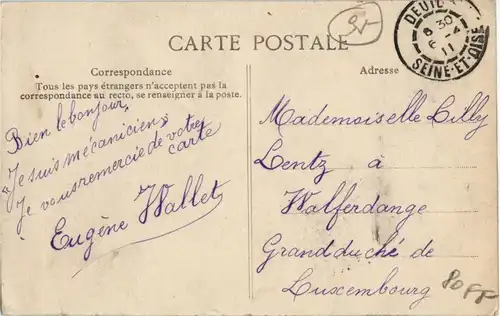 CARTE POSTALE
Correspondance
Tous les pays étrangers n'acceptent pas la
correspondance au recto, se renseigner à la poste.
Bien le bonjour
"Je suis mécanicien"
Je vous remercie de votre
carte
Eugène Wallet
Adresse
Mademoiselle Lilly
Lentz à
Walferdange
Grand duché de
Luxembourg
DEUIL
8 30
6 - 4
11
SEINE-ET-OISE
80FF